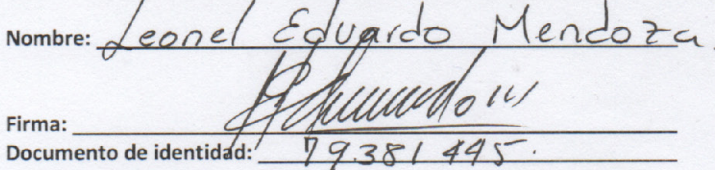 Nombre: Leonel Eduardo Mendoza
Firma:
Documento de identidad: 79.381 445.